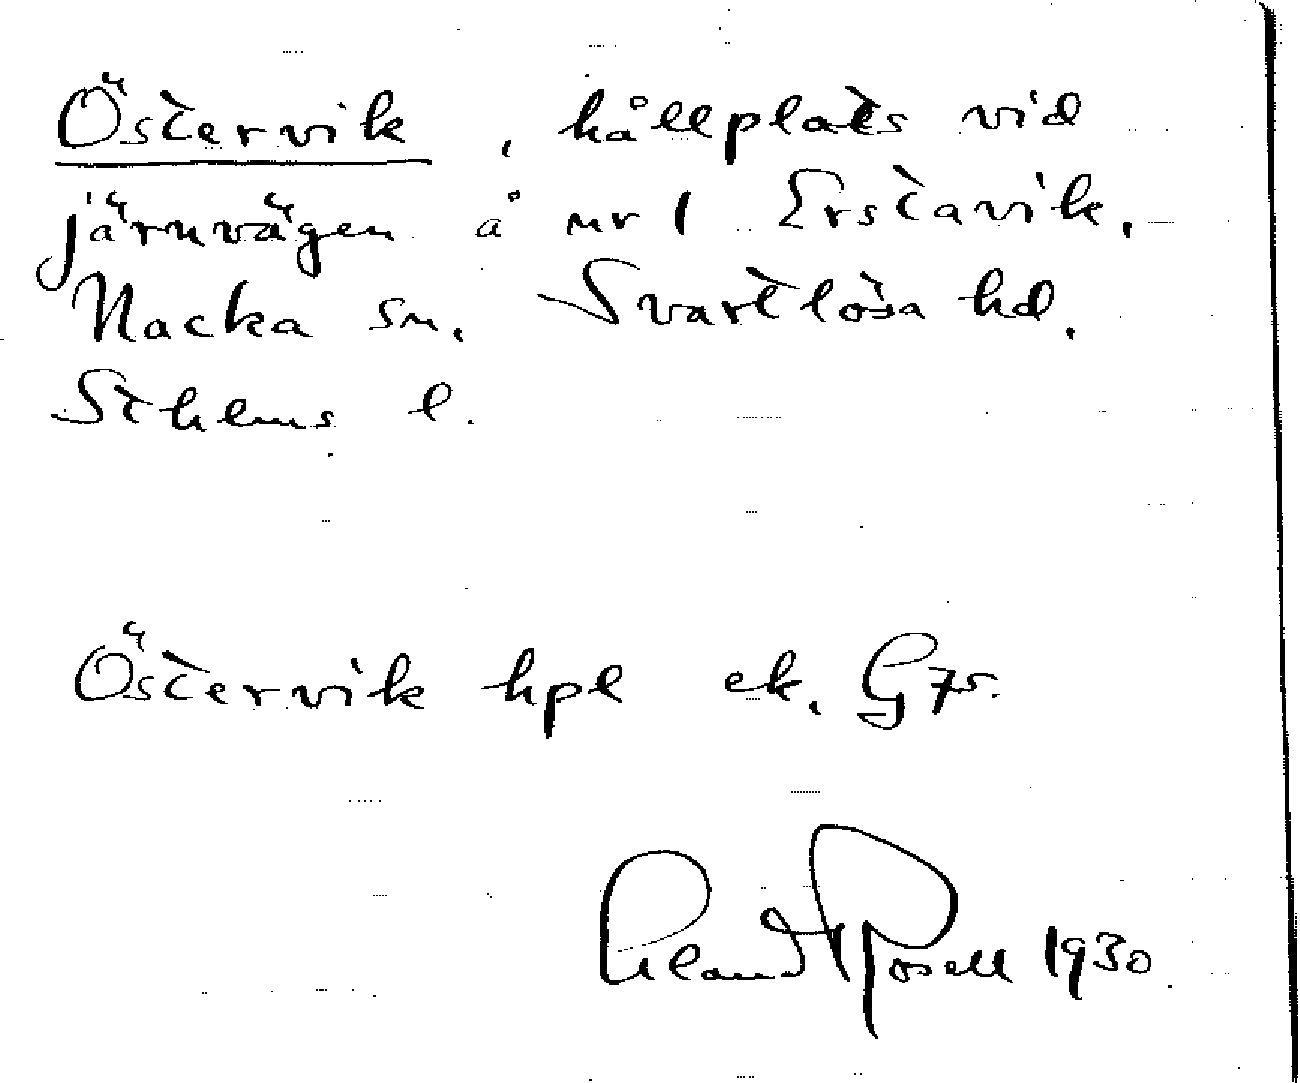 Östervik, hållplats vid
järnvägen å nr 1 Erstavik,
Nacka sn. Svartlösa hd.
Sthlms l.
Östervik hpl ek. G 75.
Erland Rosell 1930